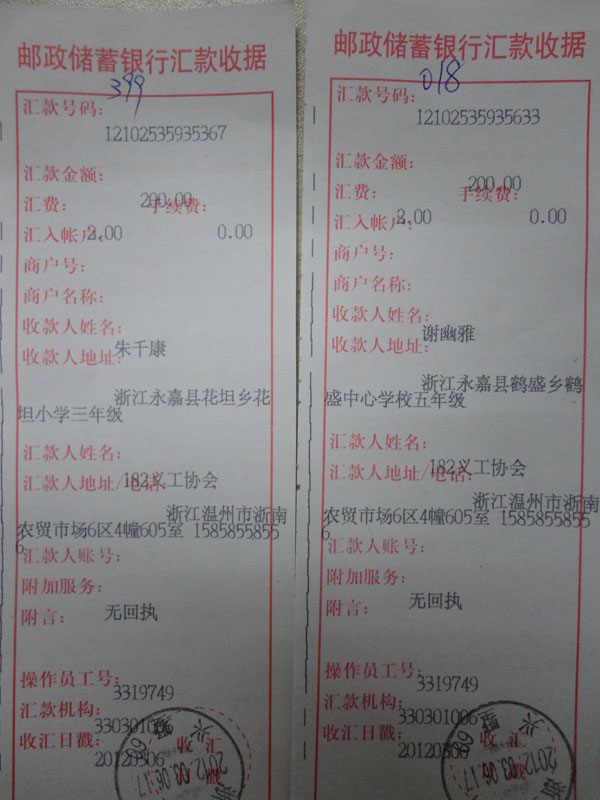 邮政储蓄银行汇款收据
399
汇款号码：
12102535935367
汇款金额：
200.00
汇费：
手续费：
汇入帐户：
2.00
0.00
商户号：
商户名称：
收款人姓名：
朱千康
收款人地址：
浙江永嘉县花坦乡花
坦小学三年级
汇款人姓名：
182义工协会
汇款人地址/电话：
浙江温州市浙南
农贸市场6区4幢605室 1585855855
6
汇款人账号：
附加服务：
附言：
无回执
操作员工号：
3319749
汇款机构：
330301006
收汇日戳：
20120306
2012.03.06.17
邮政储蓄银行汇款收据
018
汇款号码：
12102535935633
汇款金额：
200.00
汇费：
手续费：
汇入帐户：
2.00
0.00
商户号：
商户名称：
收款人姓名：
谢幽雅
收款人地址：
浙江永嘉县鹤盛乡鹤
盛中心学校五年级
汇款人姓名：
182义工协会
汇款人地址/电话：
浙江温州市浙南
农贸市场6区4幢605室 1585855855
6
汇款人账号：
附加服务：
附言：
无回执
操作员工号：
3319749
汇款机构：
330301006
收汇日戳：
20120306
2012.03.06.17